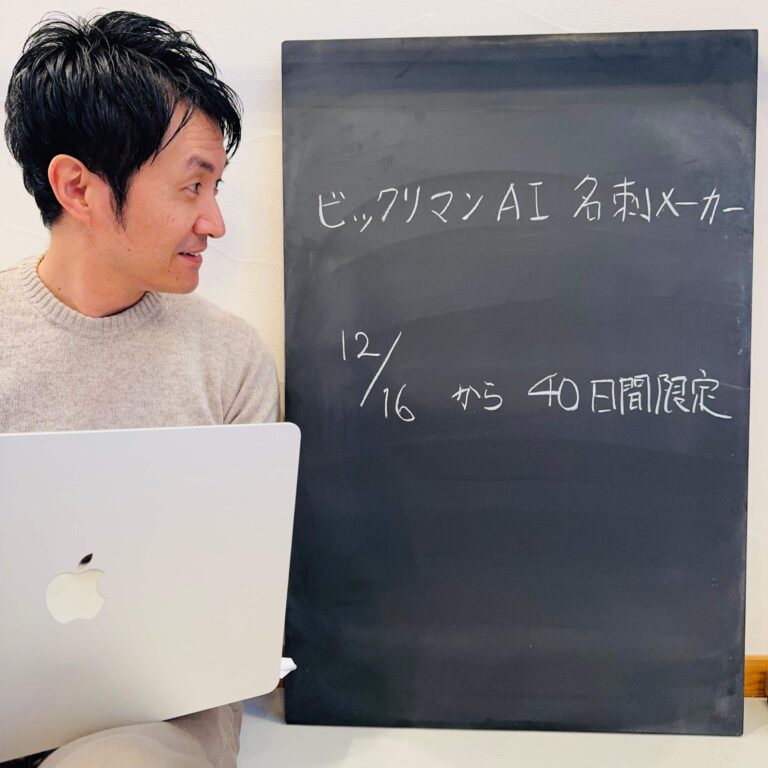 ビックリマンAI 名刺メーカー
12/16 から 40日間限定